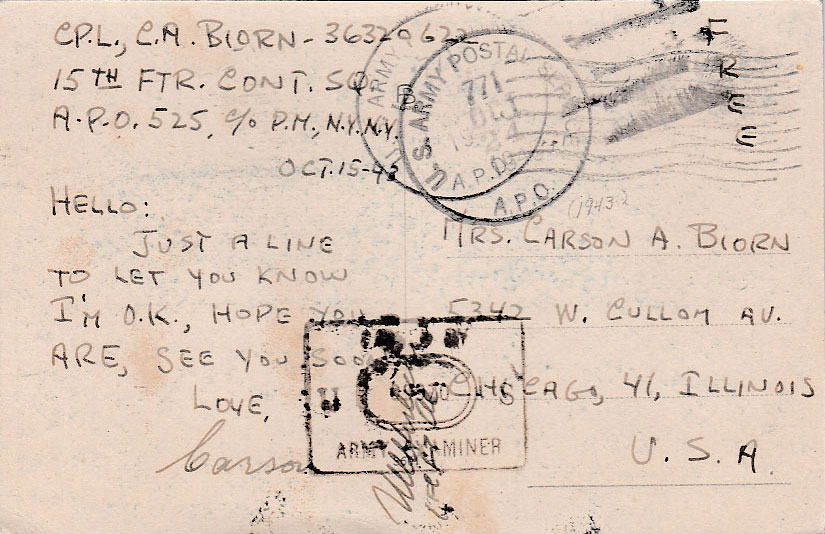 CPL., C.A. BIORN - 36329622
15TH FTR. CONT. SQ.
A.P.O. 525, c/o P.M., N.Y. N.Y.
OCT. 15-43
HELLO:
JUST A LINE
TO LET YOU KNOW
I'M O.K., HOPE YOU
ARE, SEE YOU SOON
LOVE,
Carson
FREE
U.S. ARMY POSTAL SERVICE
771
A.P.O.
(1943?)
MRS. CARSON A. BIORN
5342 W. CULLOM AV.
CHICAGO, 41, ILLINOIS
U.S.A.
ARMY EXAMINER